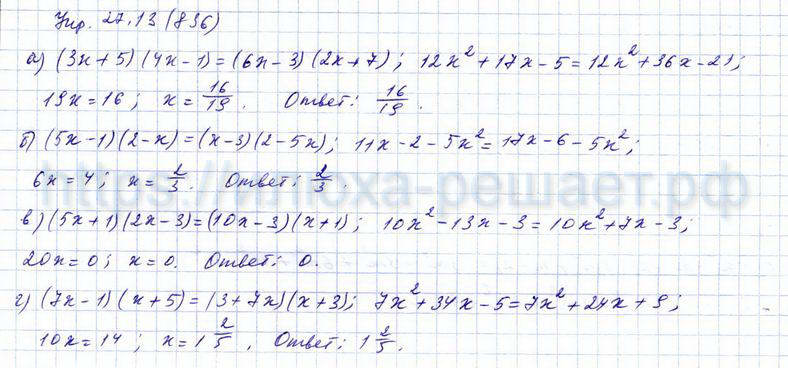 Упр. 27.13 (836)
а) (3x+5)(4x-1)=(6x-3)(2x+7); 12x²+17x-5=12x²+36x-21;
19x=16; x=16/19. Ответ: 16/19.
б) (5x-1)(2-x)=(x-3)(2-5x); 11x-2-5x²=17x-6-5x²;
6x=4; x=2/3. Ответ: 2/3.
в) (5x+1)(2x-3)=(10x-3)(x+1); 10x²-13x-3=10x²+7x-3;
20x=0; x=0. Ответ: 0.
г) (7x-1)(x+5)=(3+7x)(x+3); 7x²+34x-5=7x²+24x+9;
10x=14; x=1 2/5. Ответ: 1 2/5.